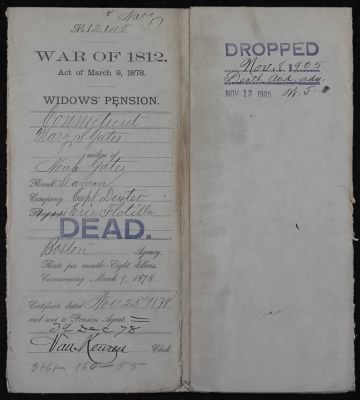 & Navy
No. 12148
WAR OF 1812.
Act of March 9, 1878.
WIDOWS' PENSION.
Connecticut
Mary S Gates
widow of
Noah Gates
Rank Seaman
Company Capt Dexter
Erie Flotilla
DEAD.
Boston Agency.
Rate per month—Eight dollars.
Commencing March 9, 1878
Certificate dated Nov 25 1878
and sent to Pension Agent.
Dec 78
Van Clerk.
160-55
DROPPED
Nov. 8, 1905
Death
NOV 13 1905